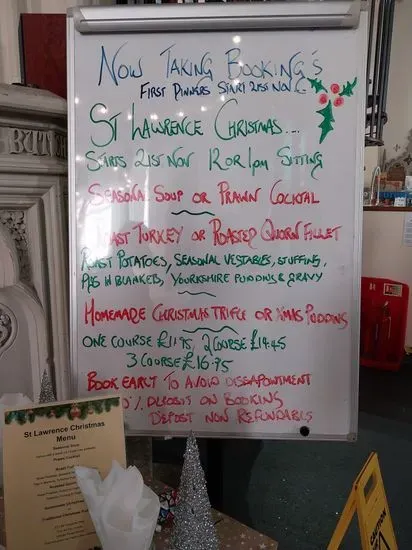 Now Taking Booking's
First Dinners Start 21st Nov
St Lawrence Christmas...
Starts 21st Nov 12 or 1pm Sitting
Seasonal Soup or Prawn Cocktal
Roast Turkey or Roasted Quorn Fillet
Roast Potatoes, Seasonal Vestables, Stuffing,
Pigs in Blankets, Yourkshire Pudding & Gravy
Homemade Christmas Trifle or Xmas Pudding
One Course £11.95, 2 Course £14.45
3 Course £16.75
Book Early To Avoid Disapointment
% Deposit on Booking
Deposit Non Refundable
St Lawrence Christmas
Menu